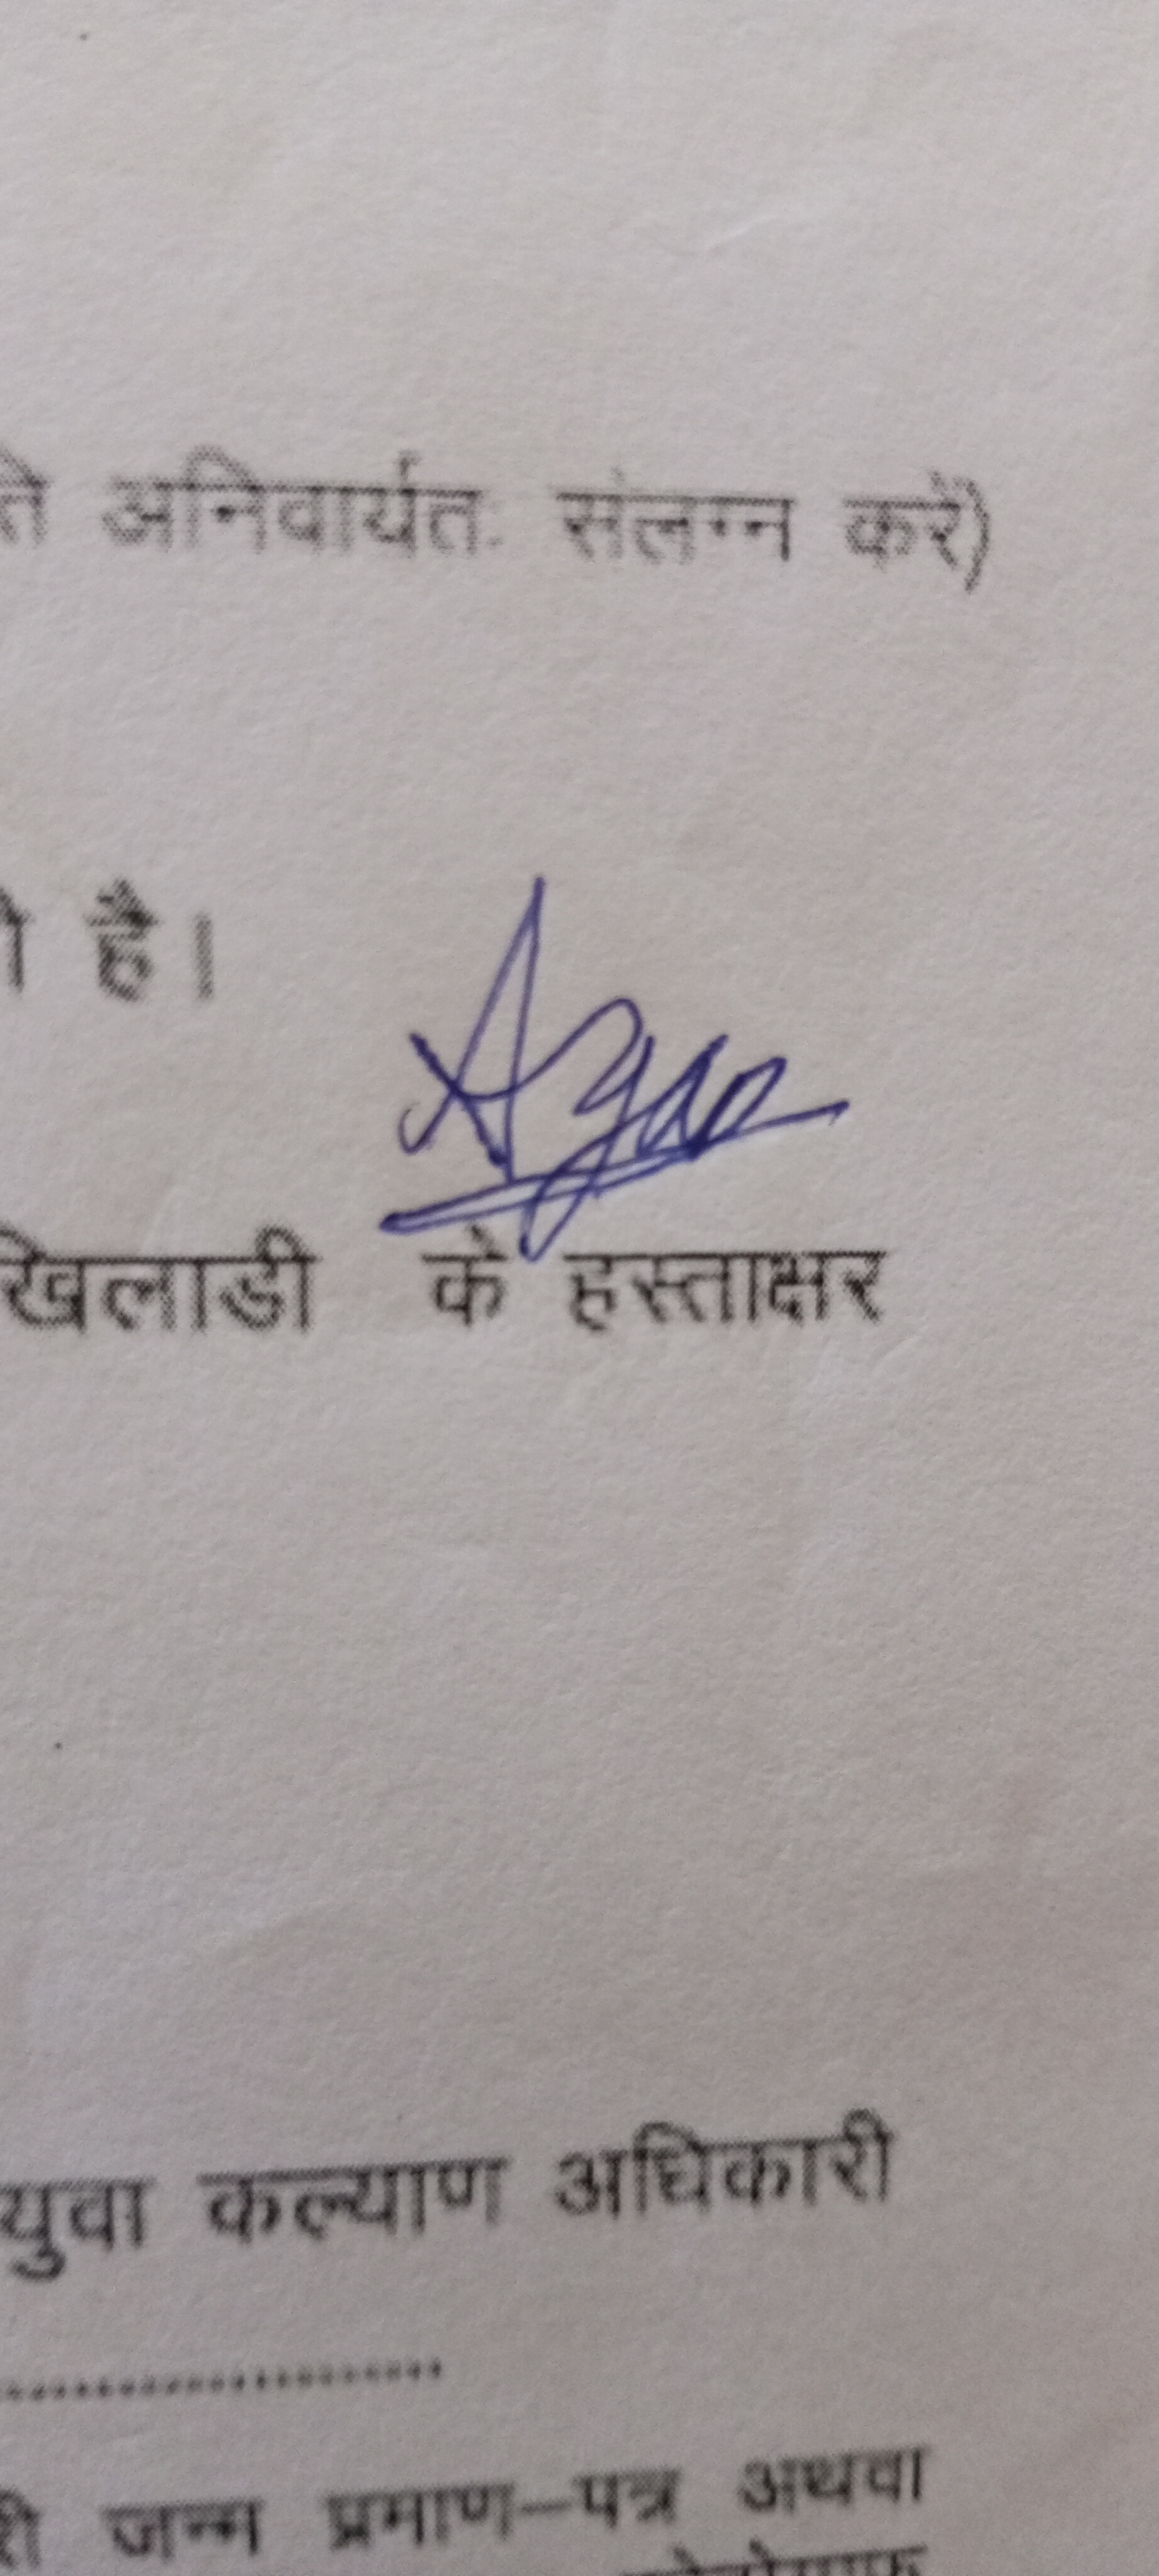 ते अनिवार्यत- संलग्न करें)
है।
खिलाडी के हस्ताक्षर
युवा कल्याण अधिकारी
......................
री जन्म प्रमाण–पत्र अथवा